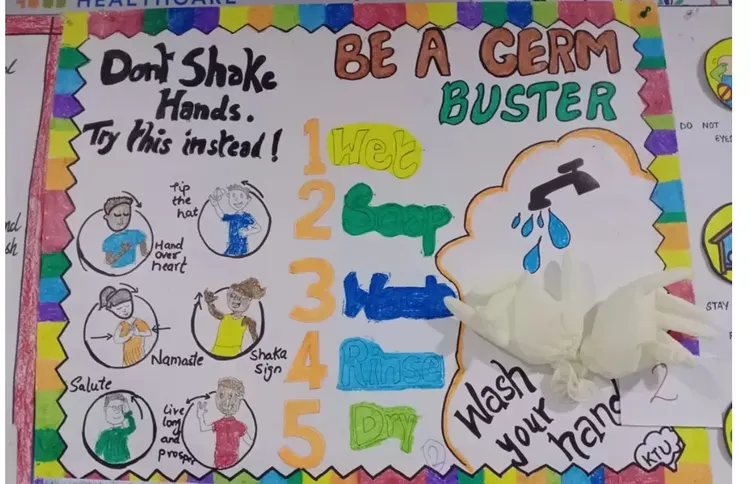 HEALTHCARE
Dont Shake
Hands.
Try this instead!
Tip
the
hat
Hand
over
heart
Namaste
Shaka
Sign
Salute
Live
long
and
prosper
BE A GERM
BUSTER
1 Wet
2 Soap
3 Wash
4 Rinse
5 Dry
Wash
your
hand
KTU
2
DO NOT
EYES
STAY